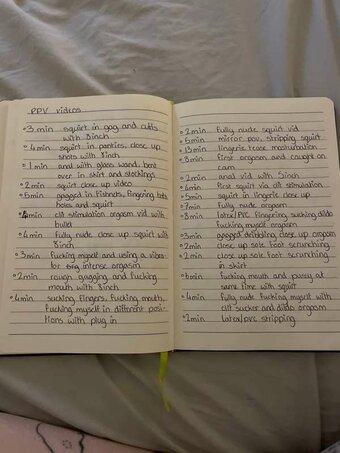 PPV videos
• 3 min squirt in gag and cuffs
with 8inch
• 4 min squirt in panties, close up
shots with 8inch
• 1 min anal with glass wand, bent
over in skirt and stockings
• 2min squirt close up video
• 6min gagged in fishnets, fingering both
holes and squirt
• 4min clit stimulation orgasm vid with
bullet
• 4 min fully nude close up squirt with
8inch
• 3min fucking myself and using a vibra-
tor big intense orgasm
• 2min rough gagging and fucking
mouth with 8inch
• 4min sucking fingers, fucking mouth,
fucking myself in different posi-
tions with plug in
• 2min fully nude squirt vid
• 5min mirror pov, stripping squirt
• 13min lingerie tease masturbation
• 8min first orgasm and caught on
cam
• 2min anal vid with 5inch
• 6min first squirt via clit stimulation
• 5min squirt in lingerie close up
• 7min fully nude orgasm
• 8min latex/PVC fingering, sucking dildo
fucking myself orgasm
• 3min gagged drooling close up orgasm
• 2min close up sole foot scrunching
• 2min close up sole foot scrunching
in skirt
• 6min fucking mouth and pussy at
same time with squirt
• 4min fully nude fucking myself with
clit sucker and dildo orgasm
• 2min latex/pvc stripping